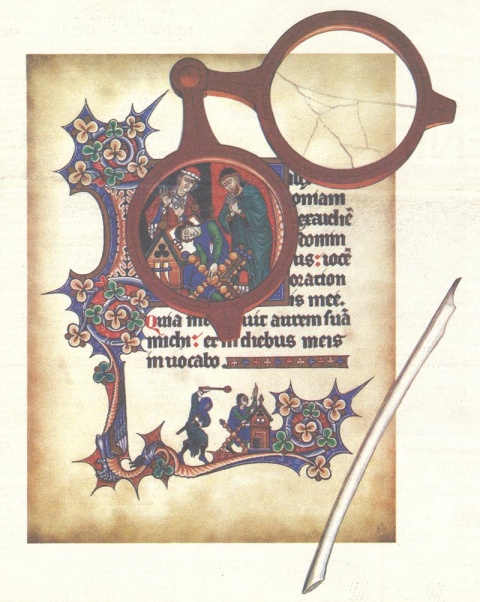 oniam
exaudiē
domin
us: uocē
oration
is meē.
Quia in uit aurem suā
michi: et in diebus meis
inuocabo